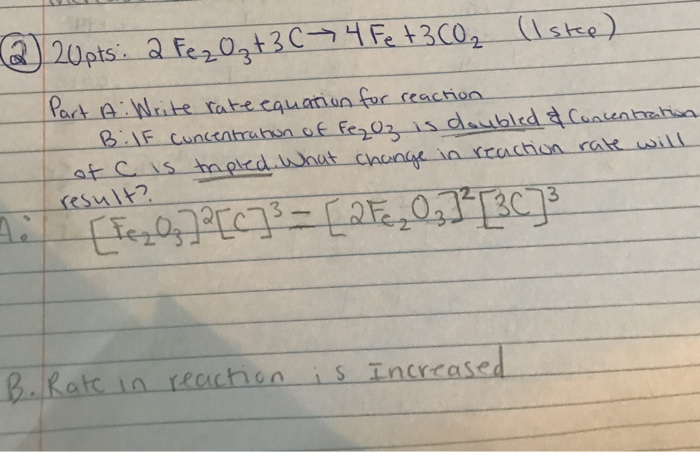 ② 20pts: 2 Fe₂O₃ + 3C → 4 Fe + 3CO₂ (1 step)
Part A: Write rate equation for reaction
B: IF concentration of Fe₂O₃ is doubled & Concentration
of C is tripled what change in reaction rate will
result?
A: [Fe₂O₃]²[C]³ = [2Fe₂O₃]²[3C]³
B. Rate in reaction is Increased